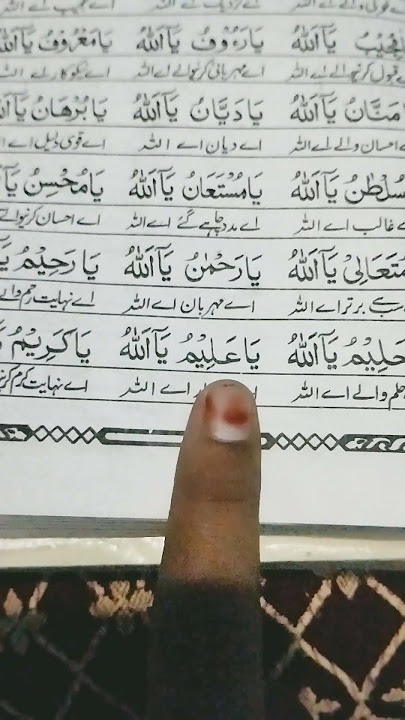 لْمُجِيْبُ يَآاَللّٰهُ يَارَءُوْفُ يَآاَللّٰهُ يَامَعْرُوْفُ يَآاَللّٰهُ
اے مہربانی کرنیوالے اے اللہ
مَنَّانُ يَآاَللّٰهُ يَادَيَّانُ يَآاَللّٰهُ يَابُرْهَانُ يَآ
احسان والے اے اللہ اے دیان اے اللہ اے قوی دلیل اے
سُلْطٰنُ يَآاَللّٰهُ يَامُسْتَعَانُ يَآاَللّٰهُ يَامُحْسِنُ يَآ
غالب اے اللہ اے مدد چاہے گئے اے اللہ اے احسان کرنیوالے
مُتَعَالِیْ يَآاَللّٰهُ يَارَحْمٰنُ يَآاَللّٰهُ يَارَحِيْمُ
برتر اے اللہ اے مہربان اے اللہ اے نہایت رحم والے
حَلِيْمُ يَآاَللّٰهُ يَاعَلِيْمُ يَآاَللّٰهُ يَاكَرِيْمُ
حلم والے اے اللہ اے اللہ اے نہایت کرم